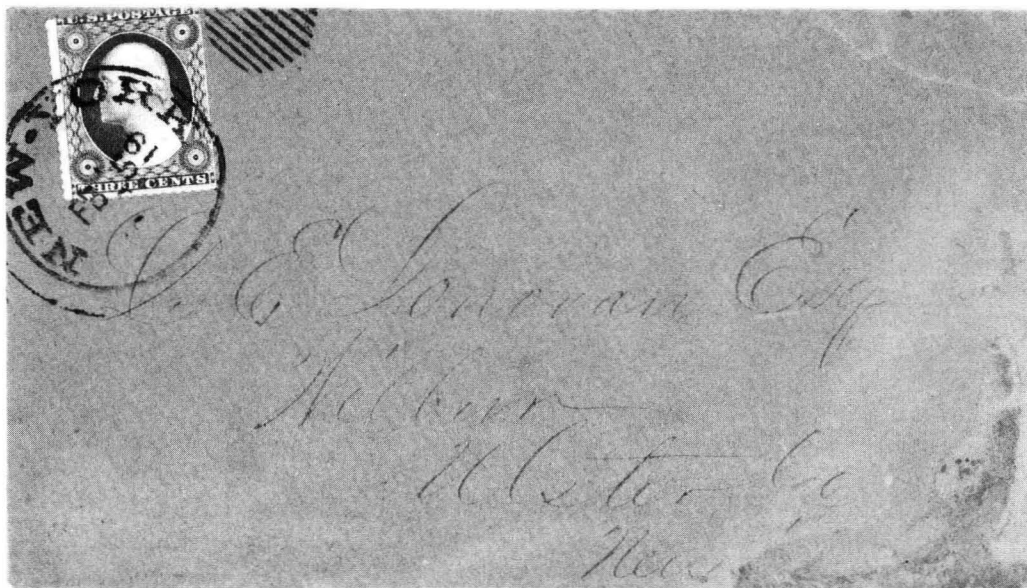 U.S. POSTAGE
THREE CENTS
NEW-YORK
FEB
61
E Donovan Esq
Wilbur
Ulster Co
New